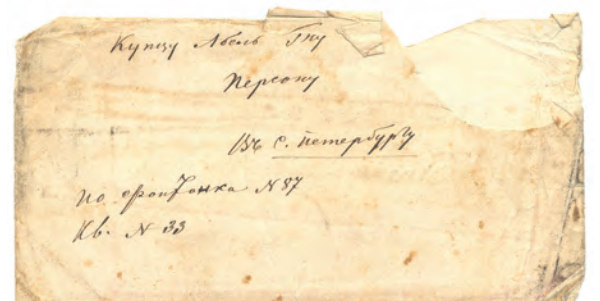 Купцу Абель Гну
Персону
Въ С. Петербургу
по фонтонка N 87
Кв. N 33